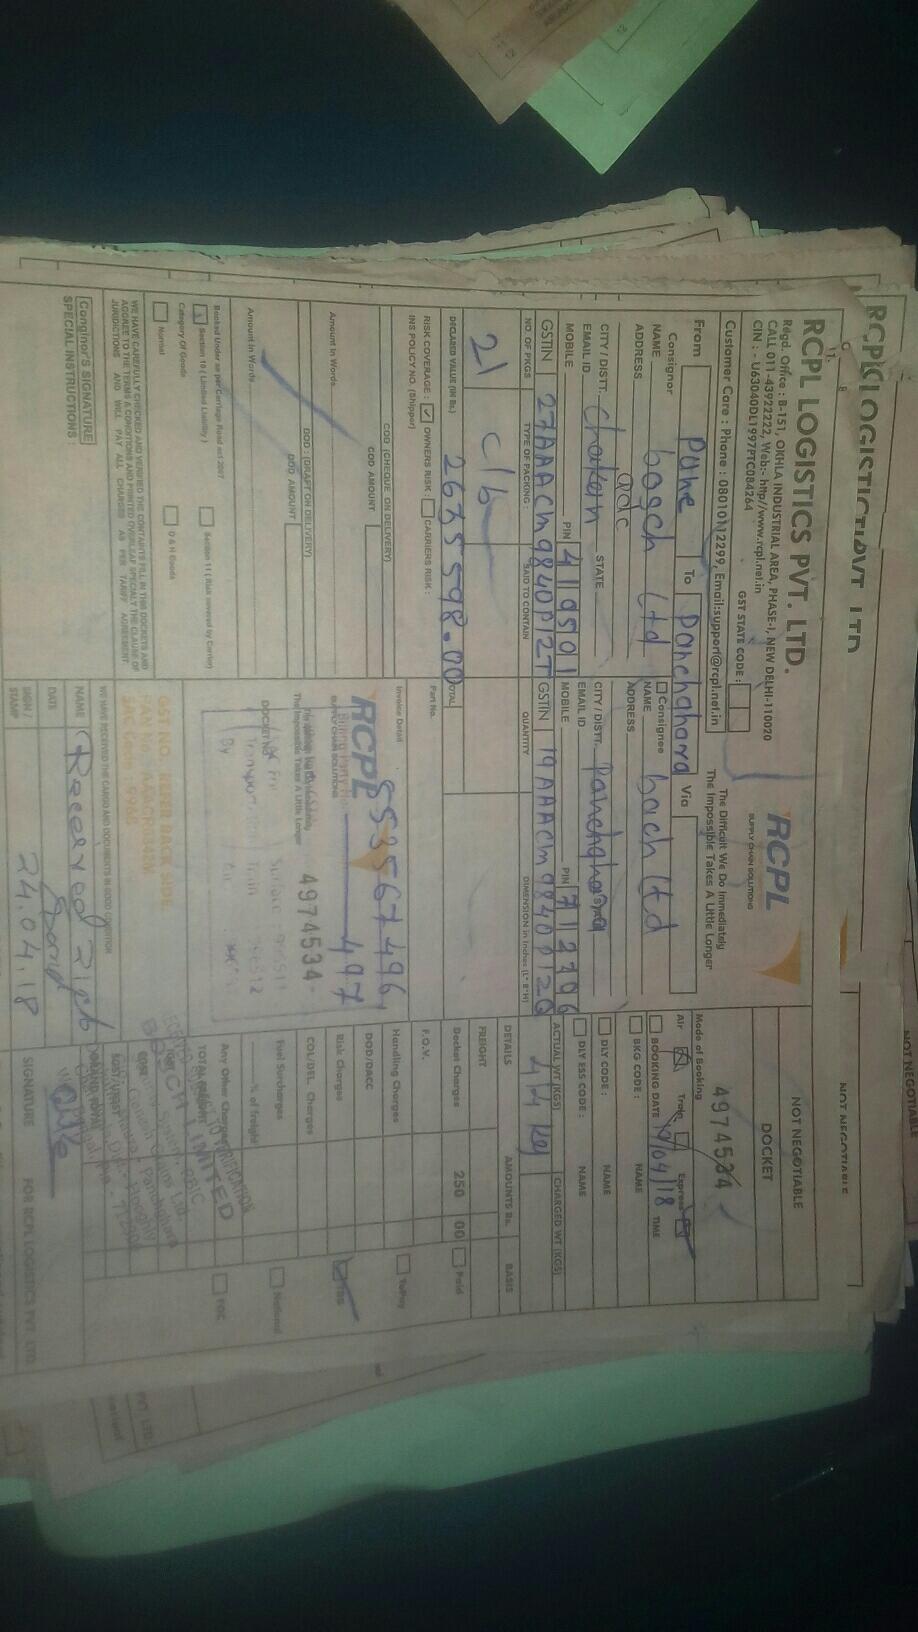 RCPL LOGISTICS PVT. LTD.
Regd. Office : B-151, OKHLA INDUSTRIAL AREA, PHASE-I, NEW DELHI-110020
CALL 011-4392222, Web:- http//www.rcpl.net.in
CIN : - U63040DL1997PTC084264
GST STATE CODE :
Customer Care : Phone : 08010112299, Email:support@rcpl.net.in
RCPL
SUPPLY CHAIN SOLUTIONS
The Difficult We Do Immediately
The Impossible Takes A Little Longer
NOT NEGOTIABLE
DOCKET
4974534
From Pune To Panchghara Via
Mode of Booking
Air Train Express
Consignor
NAME bosch Ltd
ADDRESS adc
CITY / DISTT. Chaken STATE
EMAIL ID PIN 419501
MOBILE
GSTIN 27AAACM9840P1ZT
Consignee
NAME bosch Ltd
ADDRESS
CITY / DISTT. Panchghara
EMAIL ID PIN 712706
MOBILE
GSTIN 19AAACM9840P1ZQ
BOOKING DATE 19/04/18 TIME
BKG CODE : NAME
DLY CODE : NAME
DLY ESS CODE : NAME
ACTUAL WT (KGS) CHARGED WT (KGS)
44 kg
NO. OF PKGS TYPE OF PACKING : SAID TO CONTAIN QUANTITY DIMENSION in Inches (L* B*H)
21 c/b
DETAILS AMOUNTS Rs. BASIS
FREIGHT
Docket Charges 250 00 Paid
F.O.V.
Handling Charges ToPay
DOD/DACC
Risk Charges
COL/DEL Charges
Fuel Surcharges % of freight National
Any Other Charges FOC
DECLARED VALUE (IN Rs.) 2635598.00 TOTAL
RISK COVERAGE : OWNERS RISK : CARRIERS RISK :
INS POLICY NO. (Shipper)
Part No.
COD (CHEQUE ON DELIVERY)
COD AMOUNT
Amount in Words
DOD : (DRAFT ON DELIVERY)
DOD AMOUNT
Amount in Words
Invoice Detail
853567496,
497
RCPL
SUPPLY CHAIN SOLUTIONS
The Impossible Takes A Little Longer
4974534
DOCKET No.
Booked Under as per Carriage Road act 2007
Section 10 ( Limited Liability )
Section 11 ( Risk covered by Carrier)
Category Of Goods
Normal
D & H Goods
WE HAVE CAREFULLY CHECKED AND VERIFIED THE CONTAINTS FILL IN THIS DOCKETS AND
AGGREE TO THE TERMS & CONDITIONS AND PRINTED OVERLEAF SPECIALY THE CLAUSE OF
JURIDICTIONS AND WILL PAY ALL CHARGES AS PER TARIFF AGREEMENT.
WE HAVE RECEIVED THE CARGO AND DOCUMENTS IN GOOD CONDITION
Conginor's SIGNATURE
SPECIAL INSTRUCTIONS
NAME Received 21 c/b
DATE
SIGN / STAMP 24.04.18
SIGNATURE FOR RCPL LOGISTICS PVT. LTD.